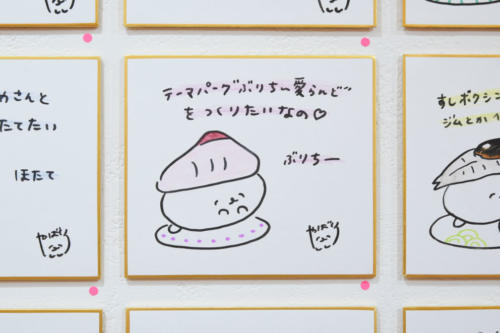 テーマパーク"ぶりちぃ愛らんど"
をつくりたいなの♡
ぶりちー
やばり
めさんと
たてたい
ほたて
すしボクシン
ジムとか